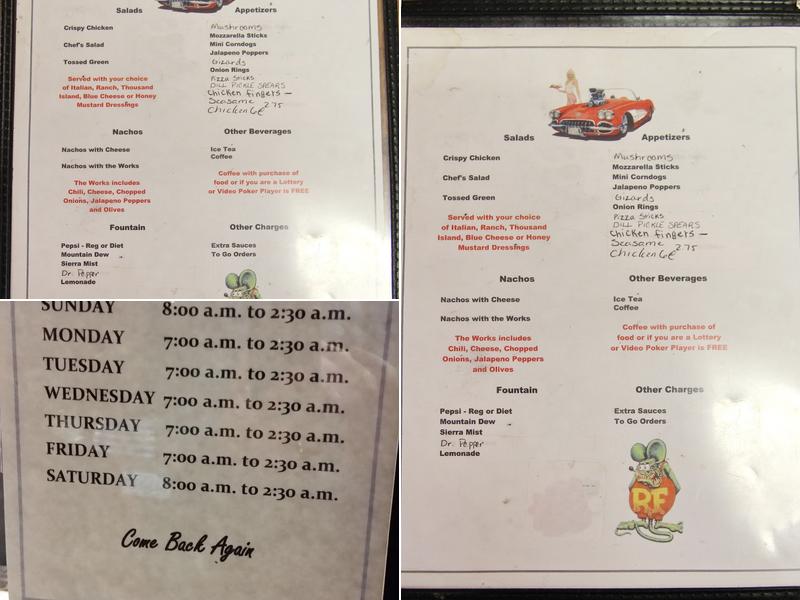 Salads
Crispy Chicken
Chef's Salad
Tossed Green
Served with your choice
of Italian, Ranch, Thousand
Island, Blue Cheese or Honey
Mustard Dressings
Appetizers
Mushrooms
Mozzarella Sticks
Mini Corndogs
Jalapeno Poppers
Gizards
Onion Rings
Pizza Sticks
DILL PICKLE SPEARS
Chicken fingers —
Seasame 2.75
Chicken
Nachos
Nachos with Cheese
Nachos with the Works
The Works includes
Chili, Cheese, Chopped
Onions, Jalapeno Peppers
and Olives
Other Beverages
Ice Tea
Coffee
Coffee with purchase of
food or if you are a Lottery
or Video Poker Player is FREE
Fountain
Pepsi - Reg or Diet
Mountain Dew
Sierra Mist
Dr. Pepper
Lemonade
Other Charges
Extra Sauces
To Go Orders
SUNDAY 8:00 a.m. to 2:30 a.m.
MONDAY 7:00 a.m. to 2:30 a.m.
TUESDAY 7:00 a.m. to 2:30 a.m.
WEDNESDAY 7:00 a.m. to 2:30 a.m.
THURSDAY 7:00 a.m. to 2:30 a.m.
FRIDAY 7:00 a.m. to 2:30 a.m.
SATURDAY 8:00 a.m. to 2:30 a.m.
Come Back Again
Salads
Crispy Chicken
Chef's Salad
Tossed Green
Served with your choice
of Italian, Ranch, Thousand
Island, Blue Cheese or Honey
Mustard Dressings
Appetizers
Mushrooms
Mozzarella Sticks
Mini Corndogs
Jalapeno Poppers
Gizards
Onion Rings
Pizza Sticks
DILL PICKLE SPEARS
Chicken fingers —
Seasame 2.75
Chicken
Nachos
Nachos with Cheese
Nachos with the Works
The Works includes
Chili, Cheese, Chopped
Onions, Jalapeno Peppers
and Olives
Other Beverages
Ice Tea
Coffee
Coffee with purchase of
food or if you are a Lottery
or Video Poker Player is FREE
Fountain
Pepsi - Reg or Diet
Mountain Dew
Sierra Mist
Dr. Pepper
Lemonade
Other Charges
Extra Sauces
To Go Orders
RF